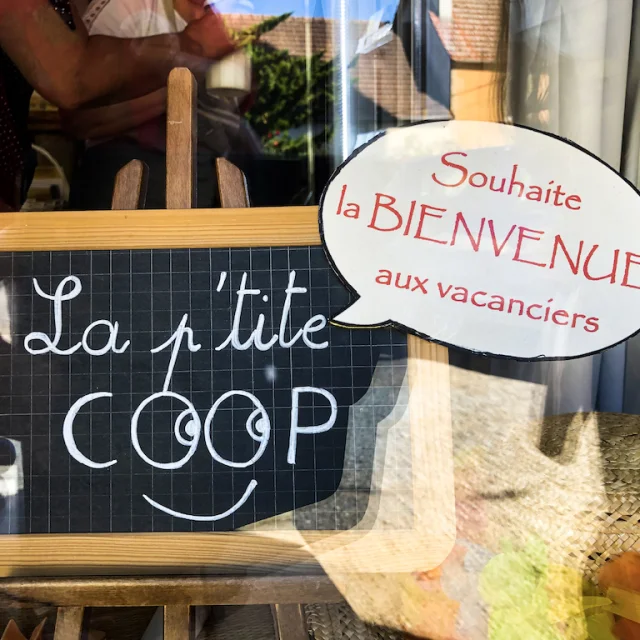 La p'tite
COOP
Souhaite
la BIENVENUE
aux vacanciers